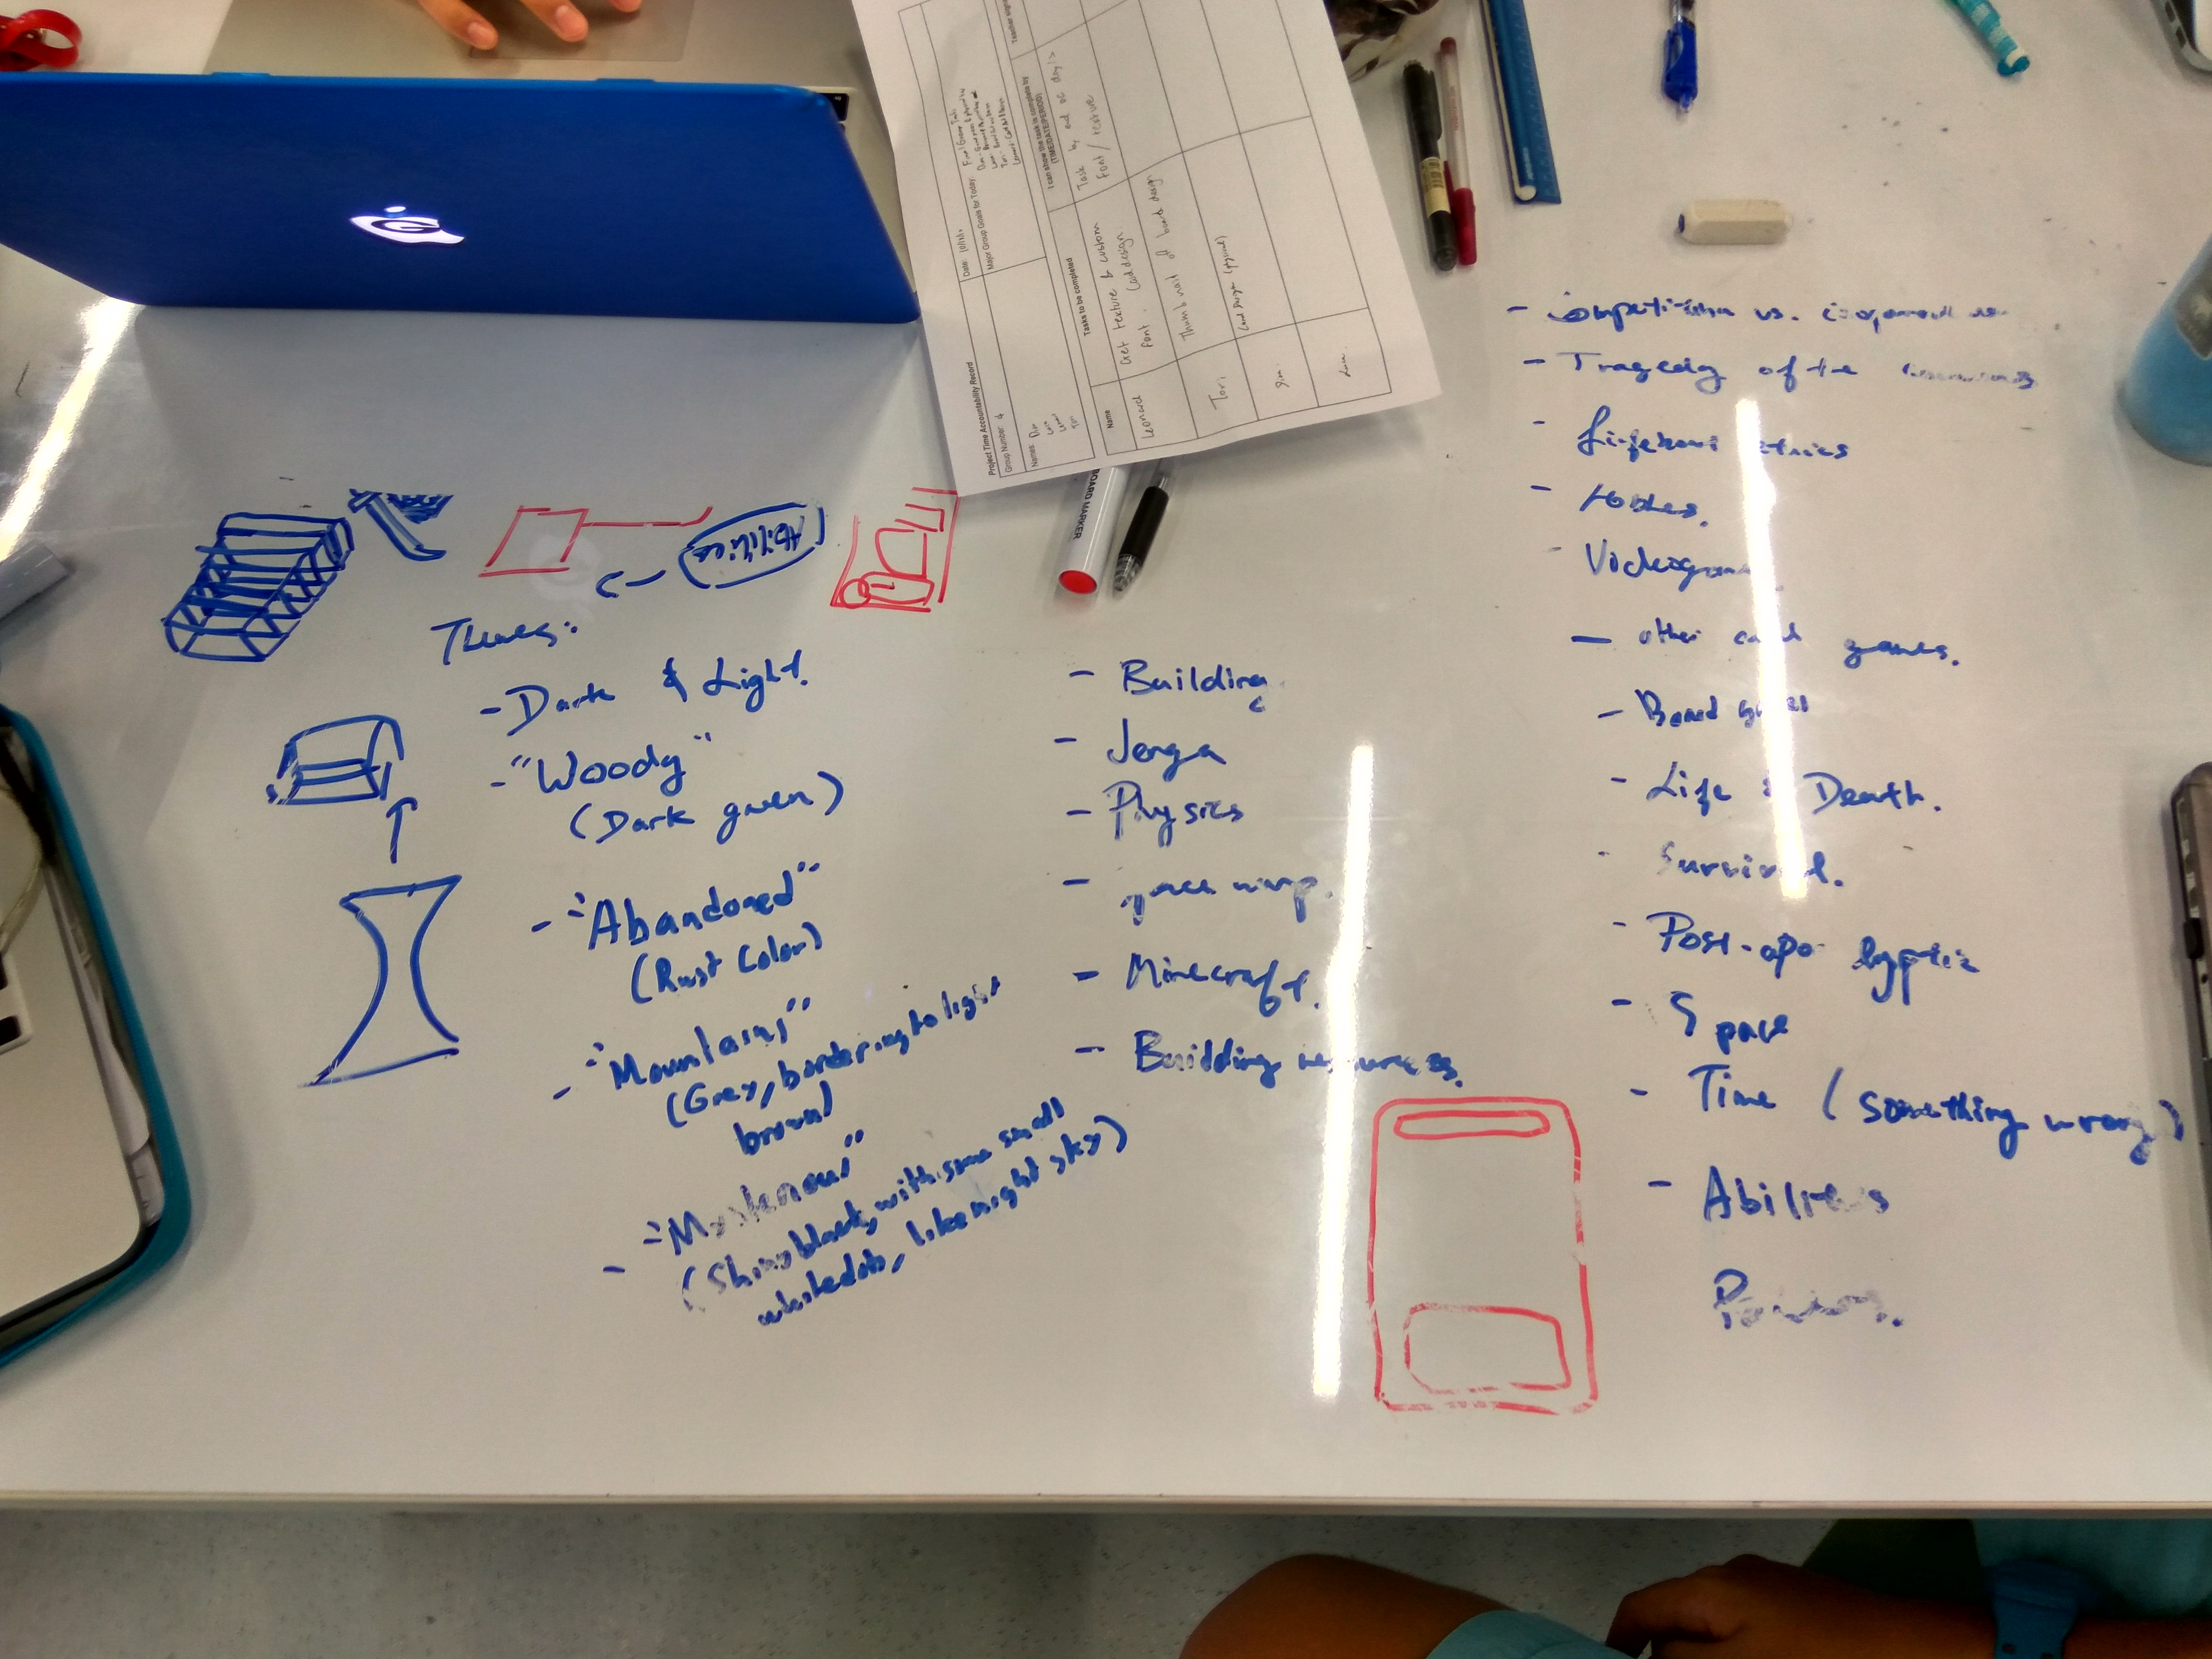 Project Time Accountability Record
Group Number: 4
Date:
Major Group Goals for Today:
Names:
Name
Tasks to be completed
I can show the task is complete by
(TIME/DATE/PERIOD)
Leonard
Get texture & custom
font. Card design.
Task by end of day
Font / texture
Tori
Thumbnail of board design
BOARD MARKER
Abilities
Themes:
- Dark & Light.
- "Woody"
(Dark green)
- "Abandoned"
(Rust Color)
- "Mountains"
(Grey, bordering to light
brown)
- "Mysterious"
(Shiny black, with some small
white dots, like night sky)
- Building
- Jenga
- Physics
- warp.
- Minecraft.
- Building resources.
- Competition vs.
- Tragedy of the
- Lifeboat ethics
-
- Videogames
- other card games.
- Board games
- Life & Death.
- Survival.
- Post-apo lyptic
- Space
- Time (something wrong)
- Abilities